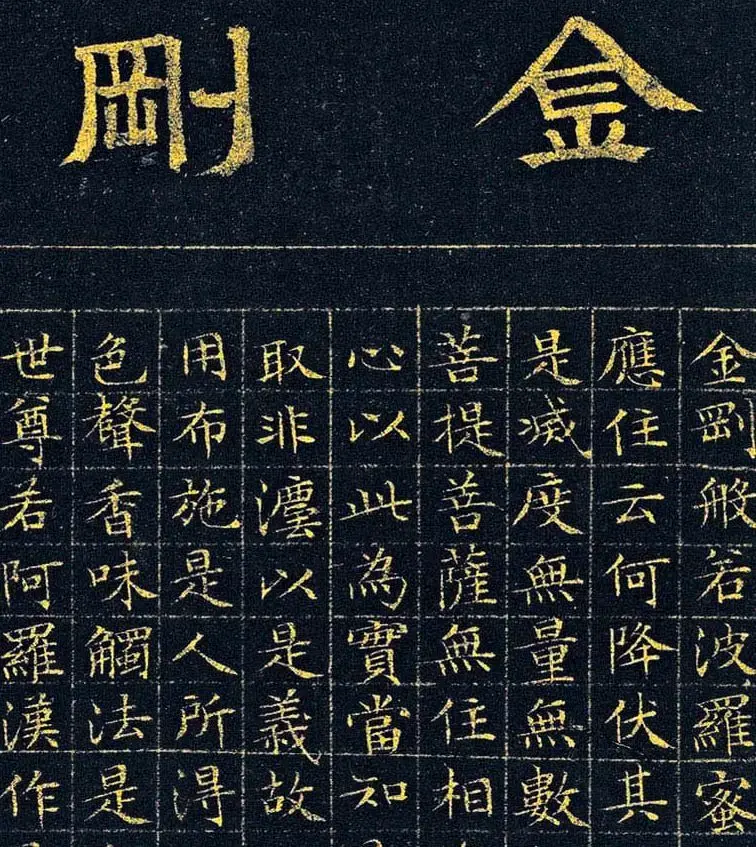 金剛
金剛般若波羅蜜
應住云何降伏其
是滅度無量無數
菩提菩薩無住相
心以此為實當知
取非灋以是義故
用布施是人所得
色聲香味觸法是
世尊若阿羅漢作